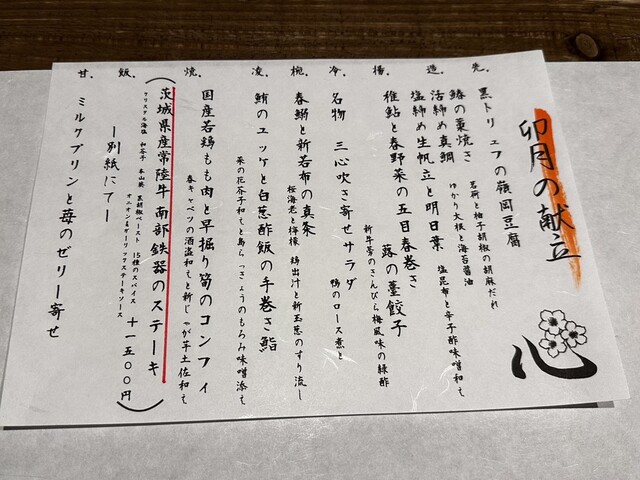 卯月の献立
心
先.
黒トリュフの嶺岡豆腐
造.
鰆の藁焼き 茗荷と柚子胡椒の胡麻だれ
活締め真鯛 ゆかり大根と海苔醤油
塩締め生帆立と明日葉 塩昆布と辛子酢味噌和え
揚.
稚鮎と春野菜の五目春巻き 蕗の薹餃子
新牛蒡のきんぴら梅風味の緑酢
冷.
名物 三心吹き寄せサラダ 鴨のロース煮と
椀.
春鰯と新若布の真条
桜海老と檸檬 鶏出汁と新玉葱のすり流し
凌.
鮪のユッケと白葱酢飯の手巻き鮨
菜の花芥子和えと島らっきょうのもろみ味噌添え
焼.
国産若鶏もも肉と早掘り筍のコンフィ
春キャベツの酒盗和えと新じゃが芋土佐和え
(茨城県産常陸牛南部鉄器のステーキ
クリスタル海塩 和芥子 本山葵 黒胡椒ペースト 15種のスパイス
オニオン&ガーリックステーキソース +一五〇〇円)
飯.
ー別紙にてー
甘.
ミルクプリンと苺のゼリー寄せ